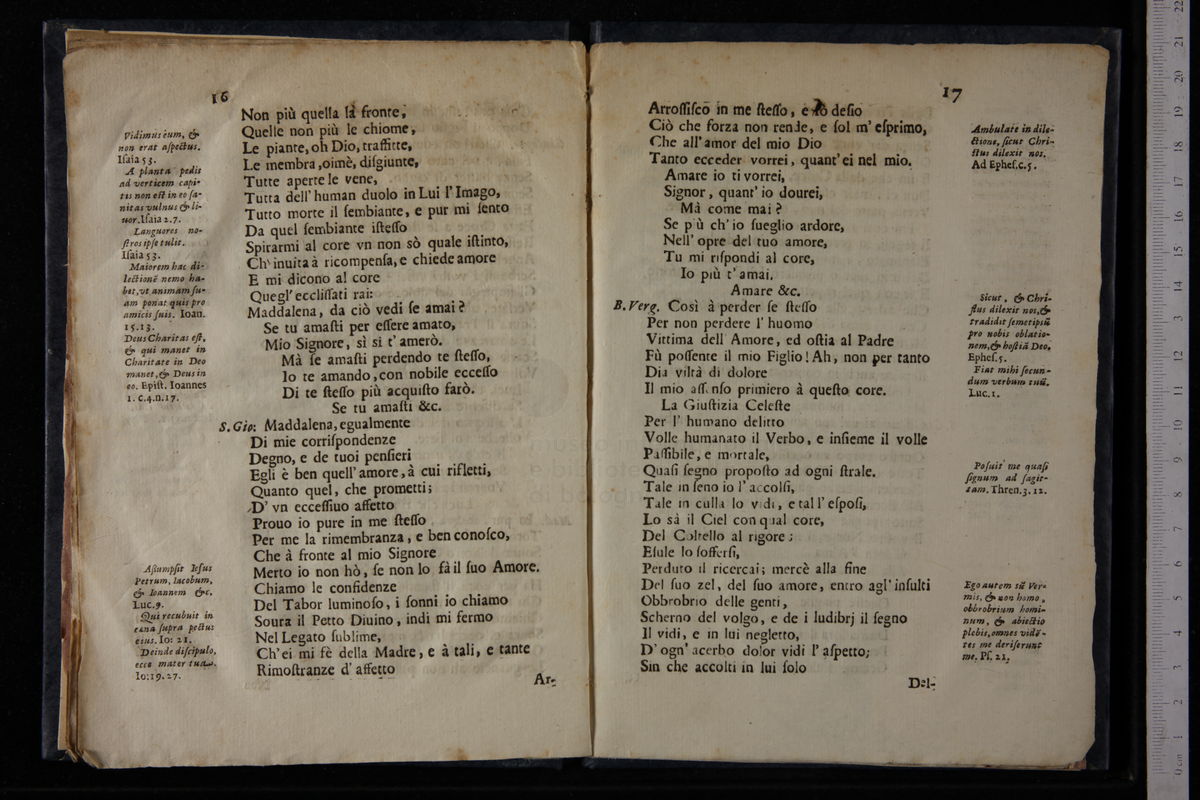 16
Non più quella la fronte,
Quelle non più le chiome,
Le piante, oh Dio, traffitte,
Le membra, oimè, disgiunte,
Tutte aperte le vene,
Tutta dell'human duolo in Lui l'Imago,
Tutto morte il sembiante, e pur mi sento
Da quel sembiante istesso
Spirarmi al core vn non sò quale istinto,
Ch'inuita à ricompensa, e chiede amore
E mi dicono al core
Quegl'ecclissati rai:
Maddalena, da ciò vedi se amai?
Se tu amasti per essere amato,
Mio Signore, sì sì t'amerò.
Mà se amasti perdendo te stesso,
Io te amando, con nobile eccesso
Di te stesso più acquisto farò.
Se tu amasti &c.
S. Gio: Maddalena, egualmente
Di mie corrispondenze
Degno, e de tuoi pensieri
Egli è ben quell'amore, à cui rifletti,
Quanto quel, che prometti;
D'vn eccessiuo affetto
Prouo io pure in me stesso
Per me la rimembranza, e ben conosco,
Che à fronte al mio Signore
Merto io non hò, se non lo fà il suo Amore.
Chiamo le confidenze
Del Tabor luminoso, i sonni io chiamo
Soura il Petto Diuino, indi mi fermo
Nel Legato sublime,
Ch'ei mi fè della Madre, e à tali, e tante
Rimostranze d'affetto
Ar-
Vidimus eum, &
non erat aspectus.
Isaia 53.
A planta pedis
ad verticem capi-
tis non est in eo sa-
nitas vulnus & li-
uor. Isaia 2.7.
Languores no-
stros ipse tulit.
Isaia 53.
Maiorem hac di-
lectionē nemo ha-
bet, vt animam su-
am ponat quis pro
amicis suis. Ioan.
15.13.
Deus Charitas est,
& qui manet in
Charitate in Deo
manet, & Deus in
eo. Epist. Ioannes
1. c.4.n.17.
Assumpsit Iesus
Petrum, Iacobum,
& Ioannem &c.
Luc.9.
Qui recubuit in
cæna supra pectus
eius. Io: 21.
Deinde discipulo,
ecce mater tua.
Io:19.27.
17
Arrossisco in me stesso, e desio
Ciò che forza non rende, e sol m'esprimo,
Che all'amor del mio Dio
Tanto ecceder vorrei, quant'ei nel mio.
Amare io ti vorrei,
Signor, quant'io dourei,
Mà come mai?
Se più ch'io sueglio ardore,
Nell'opre del tuo amore,
Tu mi rispondi al core,
Io più t'amai.
Amare &c.
B. Verg. Così à perder se stesso
Per non perdere l'huomo
Vittima dell Amore, ed ostia al Padre
Fù possente il mio Figlio! Ah, non per tanto
Dia viltà di dolore
Il mio assenso primiero à questo core.
La Giustizia Celeste
Per l'humano delitto
Volle humanato il Verbo, e insieme il volle
Passibile, e mortale,
Quasi segno proposto ad ogni strale.
Tale in seno io l'accolsi,
Tale in culla lo vidi, e tal l'esposi,
Lo sà il Ciel con qual core,
Del Coltello al rigore;
Esule lo soffersi,
Perduto il ricercai; mercè alla fine
Del suo zel, del suo amore, entro agl'insulti
Obbrobrio delle genti,
Scherno del volgo, e de i ludibrj il segno
Il vidi, e in lui negletto,
D'ogn'acerbo dolor vidi l'aspetto;
Sin che accolti in lui solo
Del-
Ambulate in dile-
ctione, sicut Chri-
stus dilexit nos.
Ad Ephes.c.5.
Sicut, & Chri-
stus dilexit nos, &
tradidit semetipsū
pro nobis oblatio-
nem, & hostiā Deo.
Ephes.5.
Fiat mihi secun-
dum verbum tuū.
Luc.1.
Posuit me quasi
signum ad sagit-
tam. Thren.3.12.
Ego autem sū Ver-
mis, & non homo,
obbrobrium homi-
num, & abiectio
plebis, omnes vidē-
tes me deriserunt
me. Ps.21.